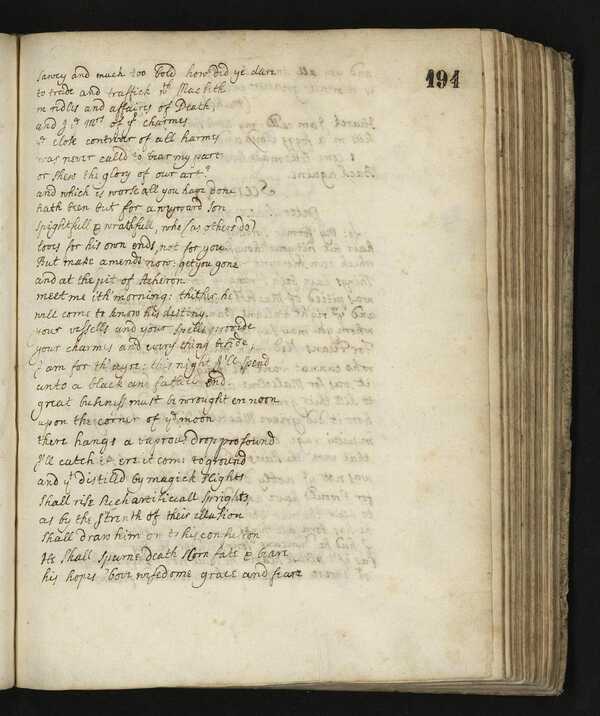 194
Sawcy and much too bold how did ye dare
to trade and traffick wth Macbeth
in ridles and affaires of Death
and I ye Mrs of yr charmes
ye close contriver of all harmes
was never calld to bear my part
or shew the glory of our art?
and which is worse all you have done
hath been but for a wayward son
spightfull & wrathfull, who (as others do)
loves for his own ends, not for you
But make amends now: get you gone
and at the pit of Acheron
meet me ith morning: thither he
will come to know his destiny.
your vessells and your spells provide
your charmes and every thing beside,
I am for th'ayre: this night I'll spend
unto a black and fatall end.
great business must be wrought ere noon
upon the corner of ye moon
there hangs a vaprous drop profound
I'll catch it ere it come to ground
and yt distiled by magick slights
shall rise such artificiall sprights
as by the strenth of their illusion
shall draw him on to his confusion
He shall spurne death scorn fate & beare
his hopes 'bove wisedome grace and feare